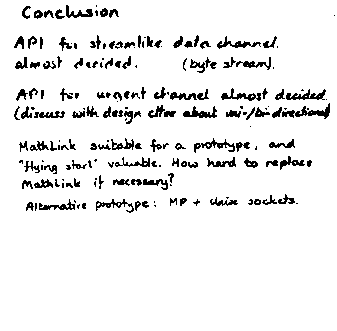 Conclusion
API for streamlike data channel
almost decided. (byte stream).
API for urgent channel almost decided
(discuss with design cttee about uni-/bi-directional)
MathLink suitable for a prototype, and
"flying start" valuable. How hard to replace
MathLink if necessary?
Alternative prototype: MP + Unix sockets.